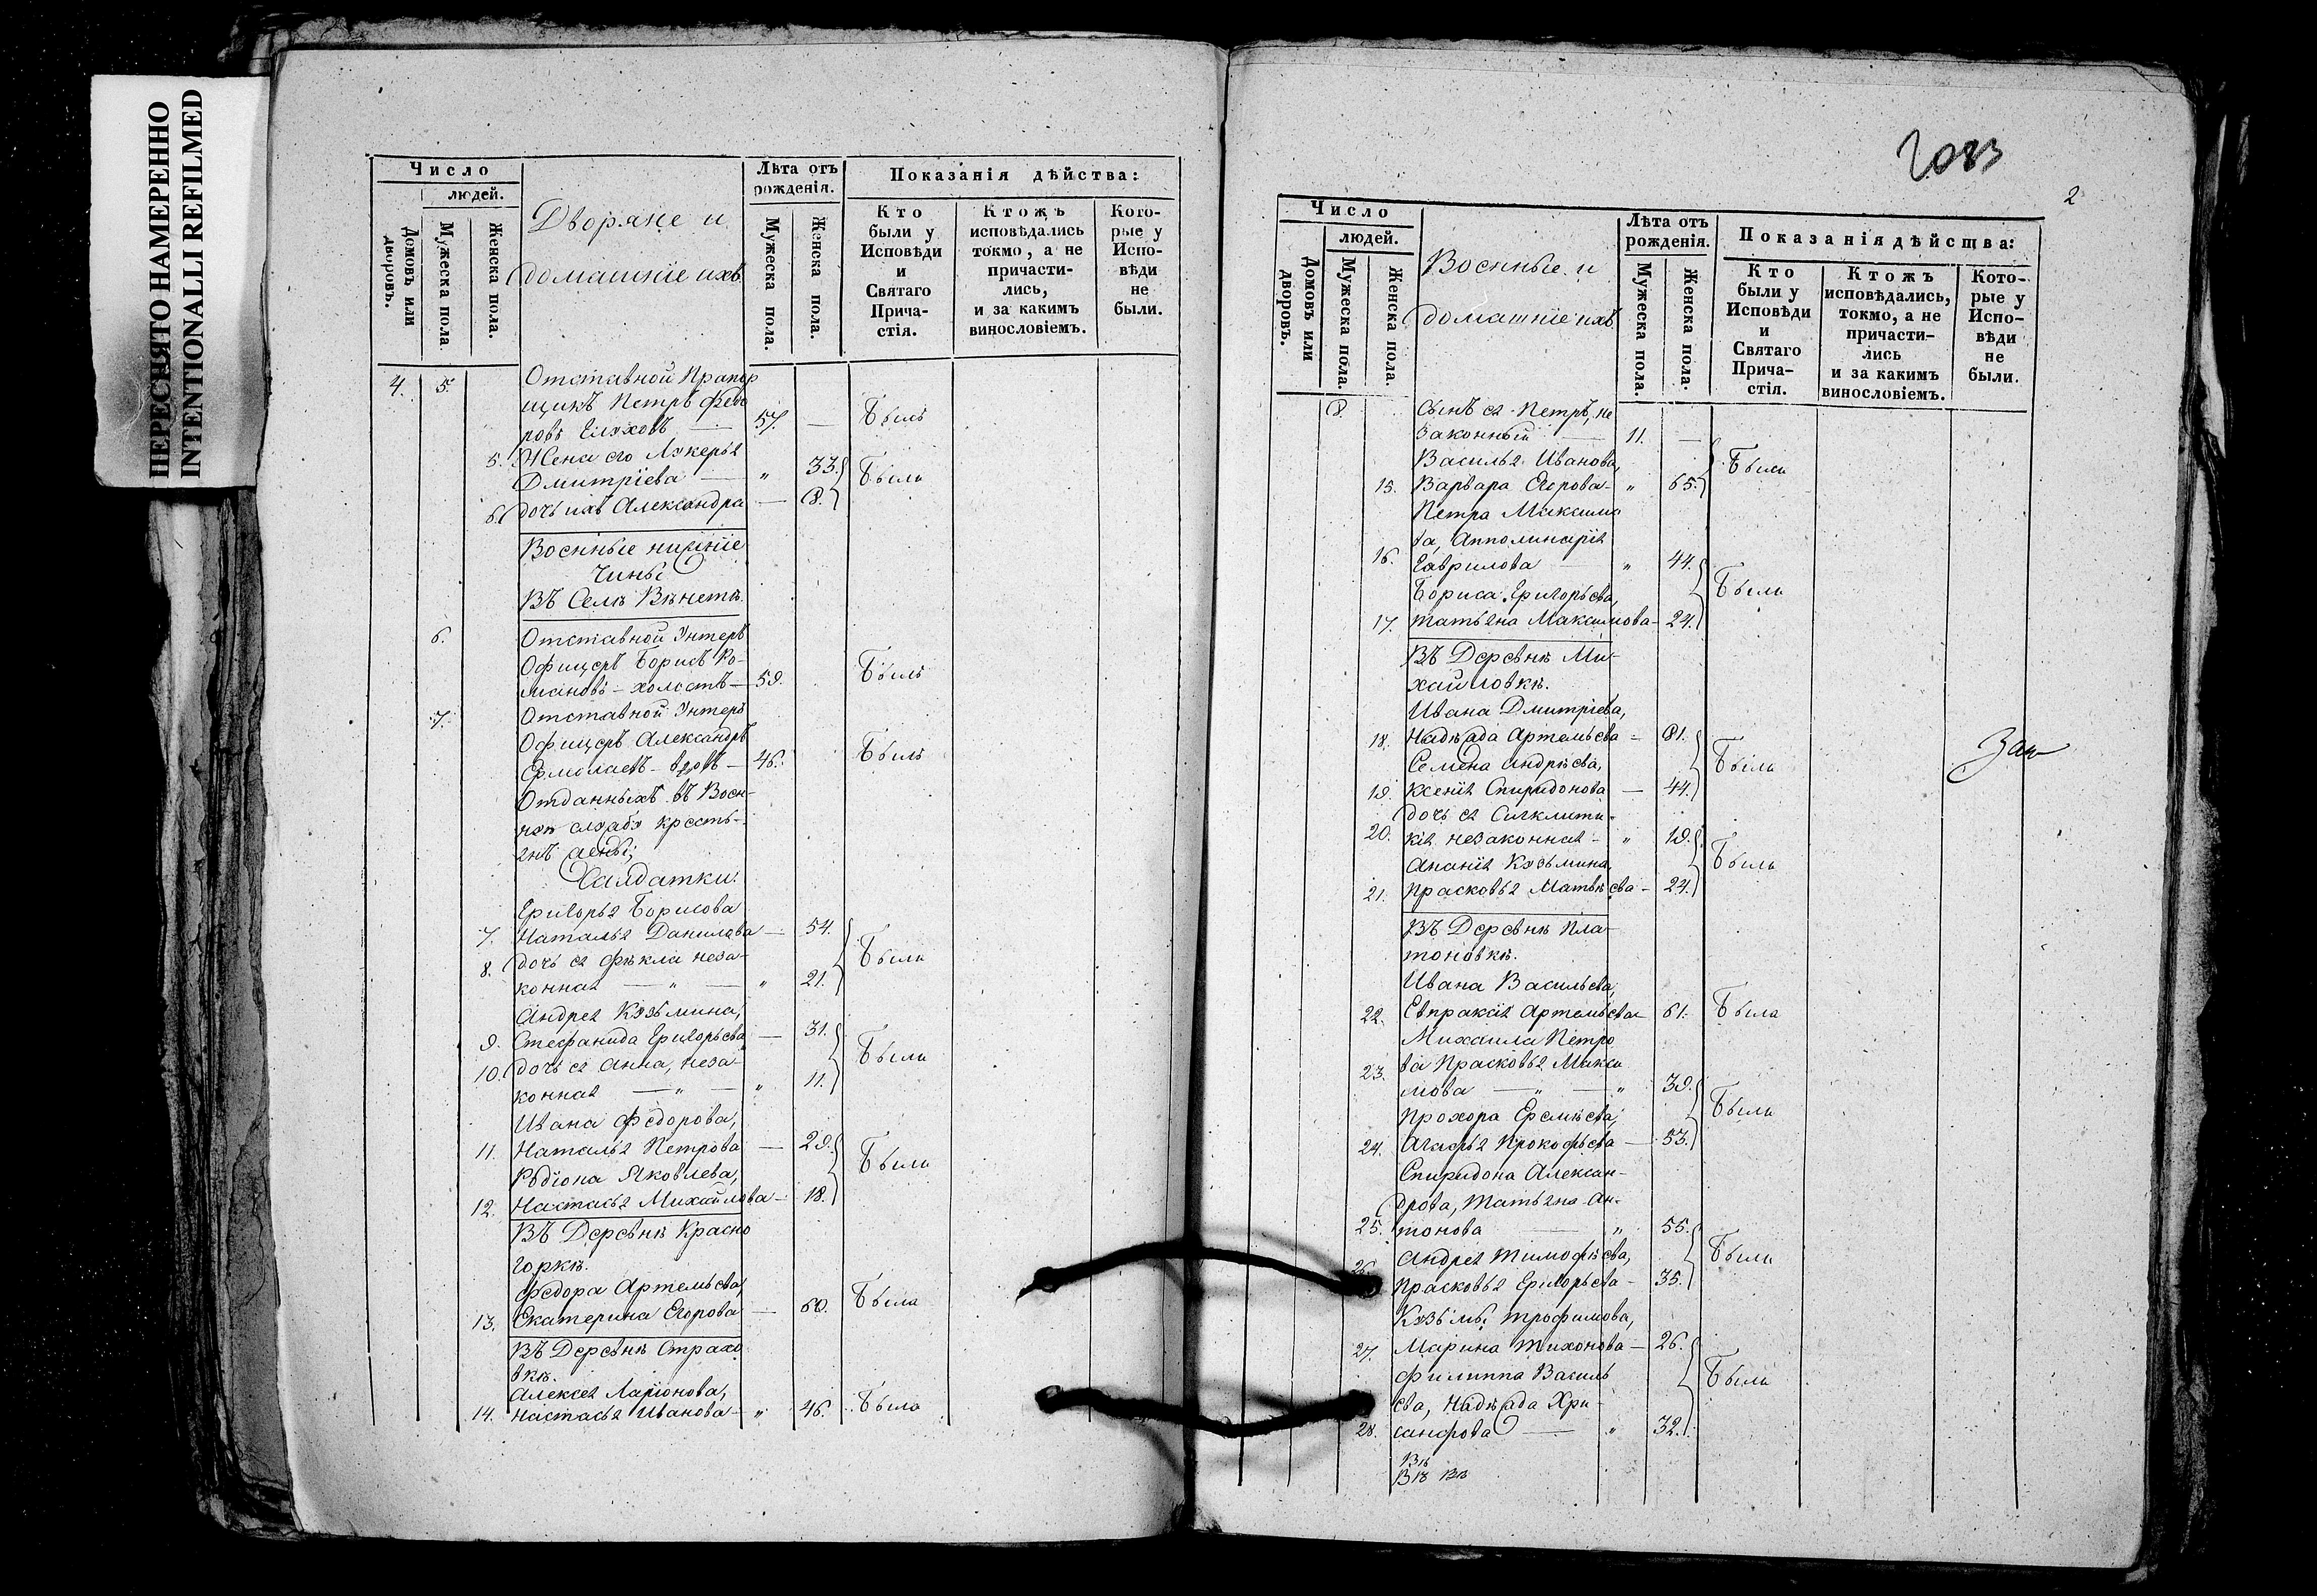 ПЕРЕСНЯТО НАМЕРЕННО
INTENTIONALLI REFILMED
Число
людей.
Домовъ или дворовъ.
Мужеска пола.
Женска пола.
Дворяне и
домашніе ихъ
Лѣта отъ рожденія.
Мужеска пола.
Женска пола.
Показанія дѣйства:
Кто были у Исповѣди и Святаго Причастія.
Ктожъ исповѣдались токмо, а не причастились, и за какимъ винословіемъ.
Которые у Исповѣди не были.
4. 5. Отставной Прапор
щикъ Петръ Федо
ровъ — 57. — Былъ
5. Жена его Лукерья
Дмитріева — " 33. Были
6. дочь ихъ Александра — 8.
Военные нижніе
чины
Въ Селѣ
6. Отставной Унтеръ
Офицеръ Борисъ Ро-
мановъ – холостъ – 59. Былъ
7. Отставной Унтеръ
Офицеръ Александръ
Ермолаевъ – вдовъ – 46. Былъ
Отданныхъ въ Воен-
ную службу кресть-
янъ жены,
Салдатки.
Григорья Борисова
7. Наталья Данилова — 54. Были
8. дочь ея Ѳекла неза-
конная — " — " 21.
Андрея Кузьмина,
9. Стефанида Григорьева — 31. Были
10. дочь ея Анна, неза-
конная — " — " 11.
Ивана Федорова,
11. Наталья Петрова — 29. Были
Родіона Яковлева,
12. Настасья Михайлова — 18.
Въ Деревнѣ Красно
горкѣ.
Федора Артемьева,
13. Екатерина Егорова — 60. Была
Въ Деревнѣ Страхо
вкѣ.
Алексея Ларіонова,
14. Настасья Иванова — " 46. Была
2
Число
людей.
Домовъ или дворовъ.
Мужеска пола.
Женска пола.
Военные и
домашніе ихъ
Лѣта отъ рожденія.
Мужеска пола.
Женска пола.
Показанія дѣйства:
Кто были у Исповѣди и Святаго Причастія.
Ктожъ исповѣдались, токмо, а не причастились и за какимъ винословіемъ.
Которые у Исповѣди не были.
8. Сынъ ея Петръ, не
законный — 11. —
Василья Иванова, Были
15. Варвара Егорова – " 65.
Петра Максимо
ва, Апполинарія
16. Гаврилова " 44.
Бориса Григорьева, Были
17. Татьяна Максимова – 24.
Въ Деревнѣ Ми-
хайловкѣ.
Ивана Дмитріева,
18. Надежда Артемьева – 81.
Семена Андрѣева, Были
19. Ксенія Спиридонова — 44.
дочь ея Сигклити-
20. кія незаконная – " 19.
Ананія Кузьмина, Были
21. Прасковья Матвѣева – 24.
Въ Деревнѣ Пла-
тоновкѣ.
Ивана Васильева,
22. Евпраксія Артемьева 61. Была
Михаила Петро
23. ва Прасковья Макси
мова — " — " 39.
Прохора Еремѣева, Были
24. Агафья Прокофьева — 53.
Спиридона Алексан-
дрова, Татьяна Ан-
25. тонова — " 55.
26. Андрея Тимофѣева, Были
Прасковья Григорьева – 35.
Кузьмы Трофимова,
27. Марина Тихонова — 26.
Филиппа Василь Были
ева, Надежда Хри-
28. санфова — " 32.